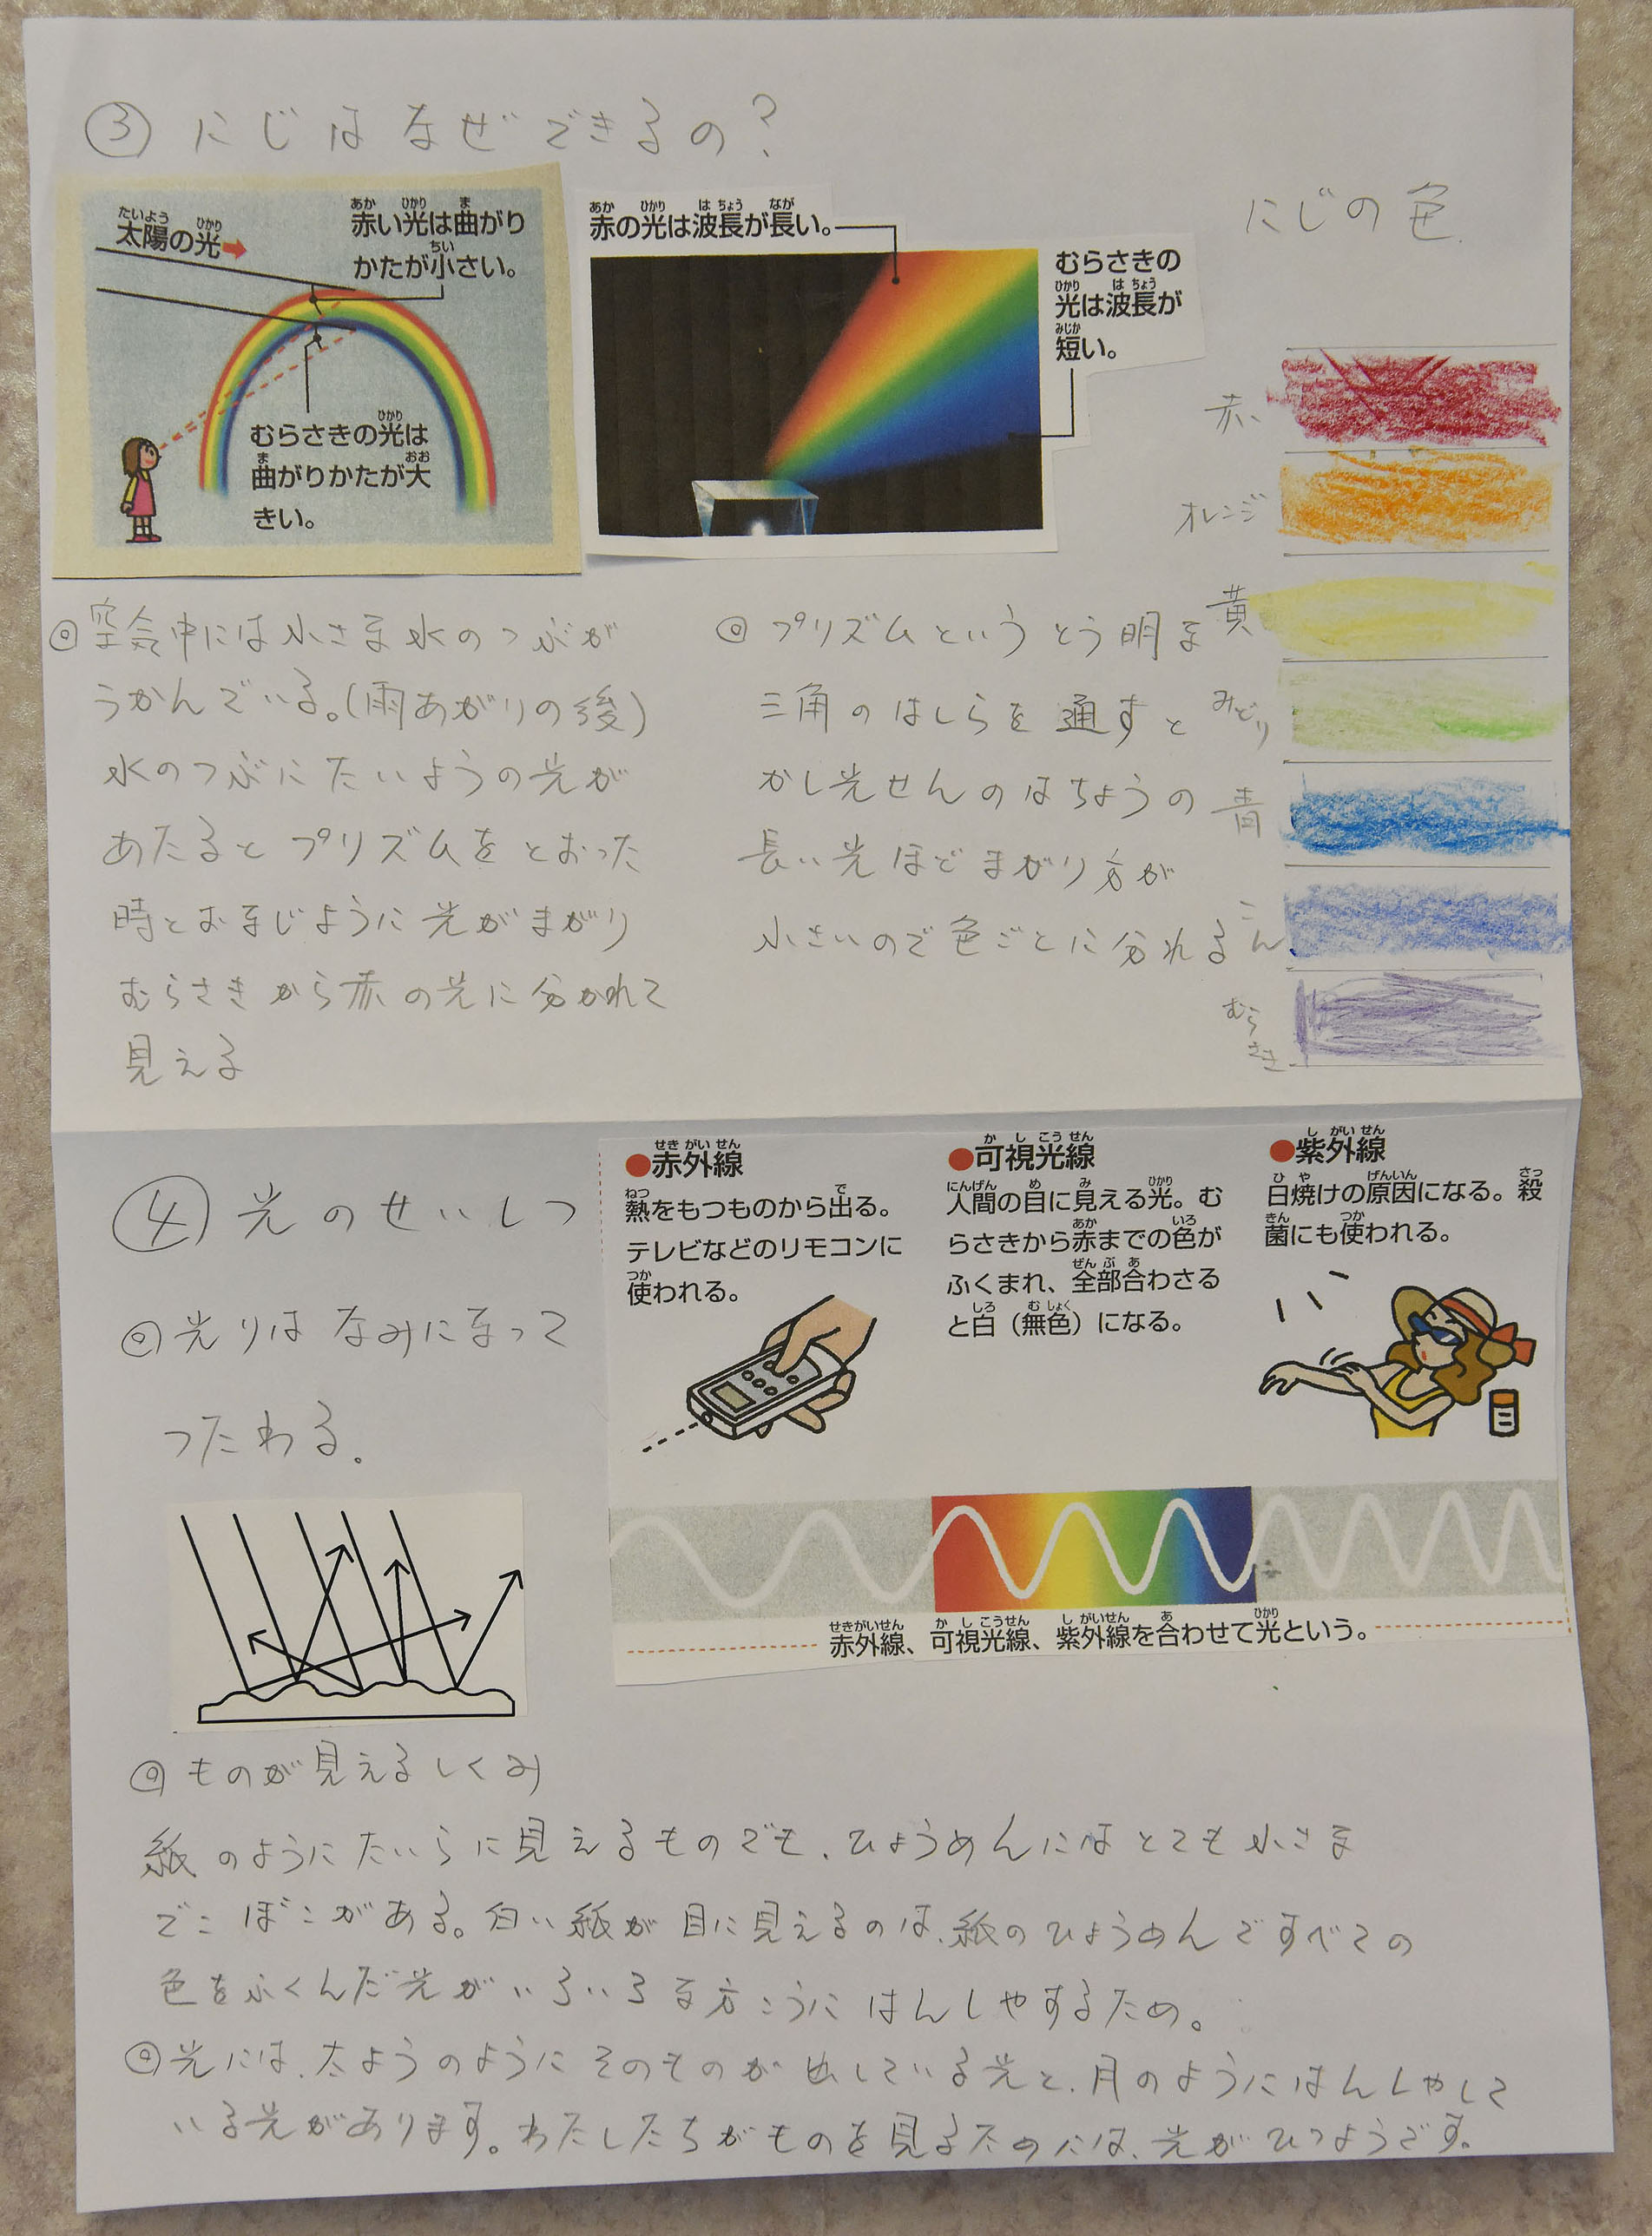 ③ にじはなぜできるの?
太陽の光
たいよう ひかり
赤い光は曲がり
あか ひかり ま
かたが小さい。
ちい
むらさきの光は
ひかり
曲がりかたが大
ま おお
きい。
赤の光は波長が長い。
あか ひかり は ちょう なが
むらさきの
光は波長が
ひかり は ちょう
短い。
みじか
にじの色
赤
オレンジ
黄
みどり
青
こん
むらさき
◎空気中には小さな水のつぶが
うかんでいる。(雨あがりの後)
水のつぶにたいようの光が
あたるとプリズムをとおった
時とおなじように光がまがり
むらさきから赤の光に分かれて
見える
◎プリズムというとう明な
三角のはしらを通すと
かし光せんのはちょうの
長い光ほどまがり方が
小さいので色ごとに分れる
④ 光のせいしつ
◎光りはなみになって
つたわる。
●赤外線
せき がい せん
熱をもつものから出る。
ねつ で
テレビなどのリモコンに
使われる。
つか
●可視光線
か し こう せん
人間の目に見える光。む
にんげん め み ひかり
らさきから赤までの色が
あか いろ
ふくまれ、全部合わさる
ぜん ぶ あ
と白(無色)になる。
しろ む しょく
●紫外線
し がい せん
日焼けの原因になる。殺
ひ や げんいん さっ
菌にも使われる。
きん つか
赤外線、可視光線、紫外線を合わせて光という。
せきがいせん か し こうせん し がいせん あ ひかり
◎ものが見えるしくみ
紙のようにたいらに見えるものでも、ひょうめんにはとても小さな
でこぼこがある。白い紙が目に見えるのは、紙のひょうめんですべての
色をふくんだ光がいろいろな方こうにはんしゃするため。
◎光には、太ようのようにそのものが出している光と、月のようにはんしゃして
いる光があります。わたしたちがものを見るためには、光がひつようです。